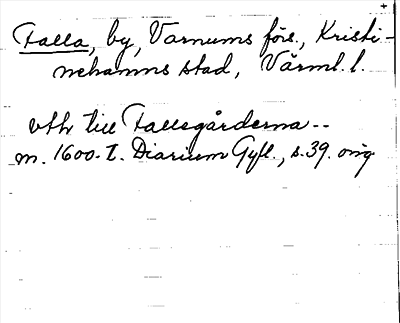 Falla, by, Varnums förs., Kristi-
nehamns stad, Värml. l.
vth till Fallsgårderna --
m. 1600-t. Diarium Gyll., s. 39. orig